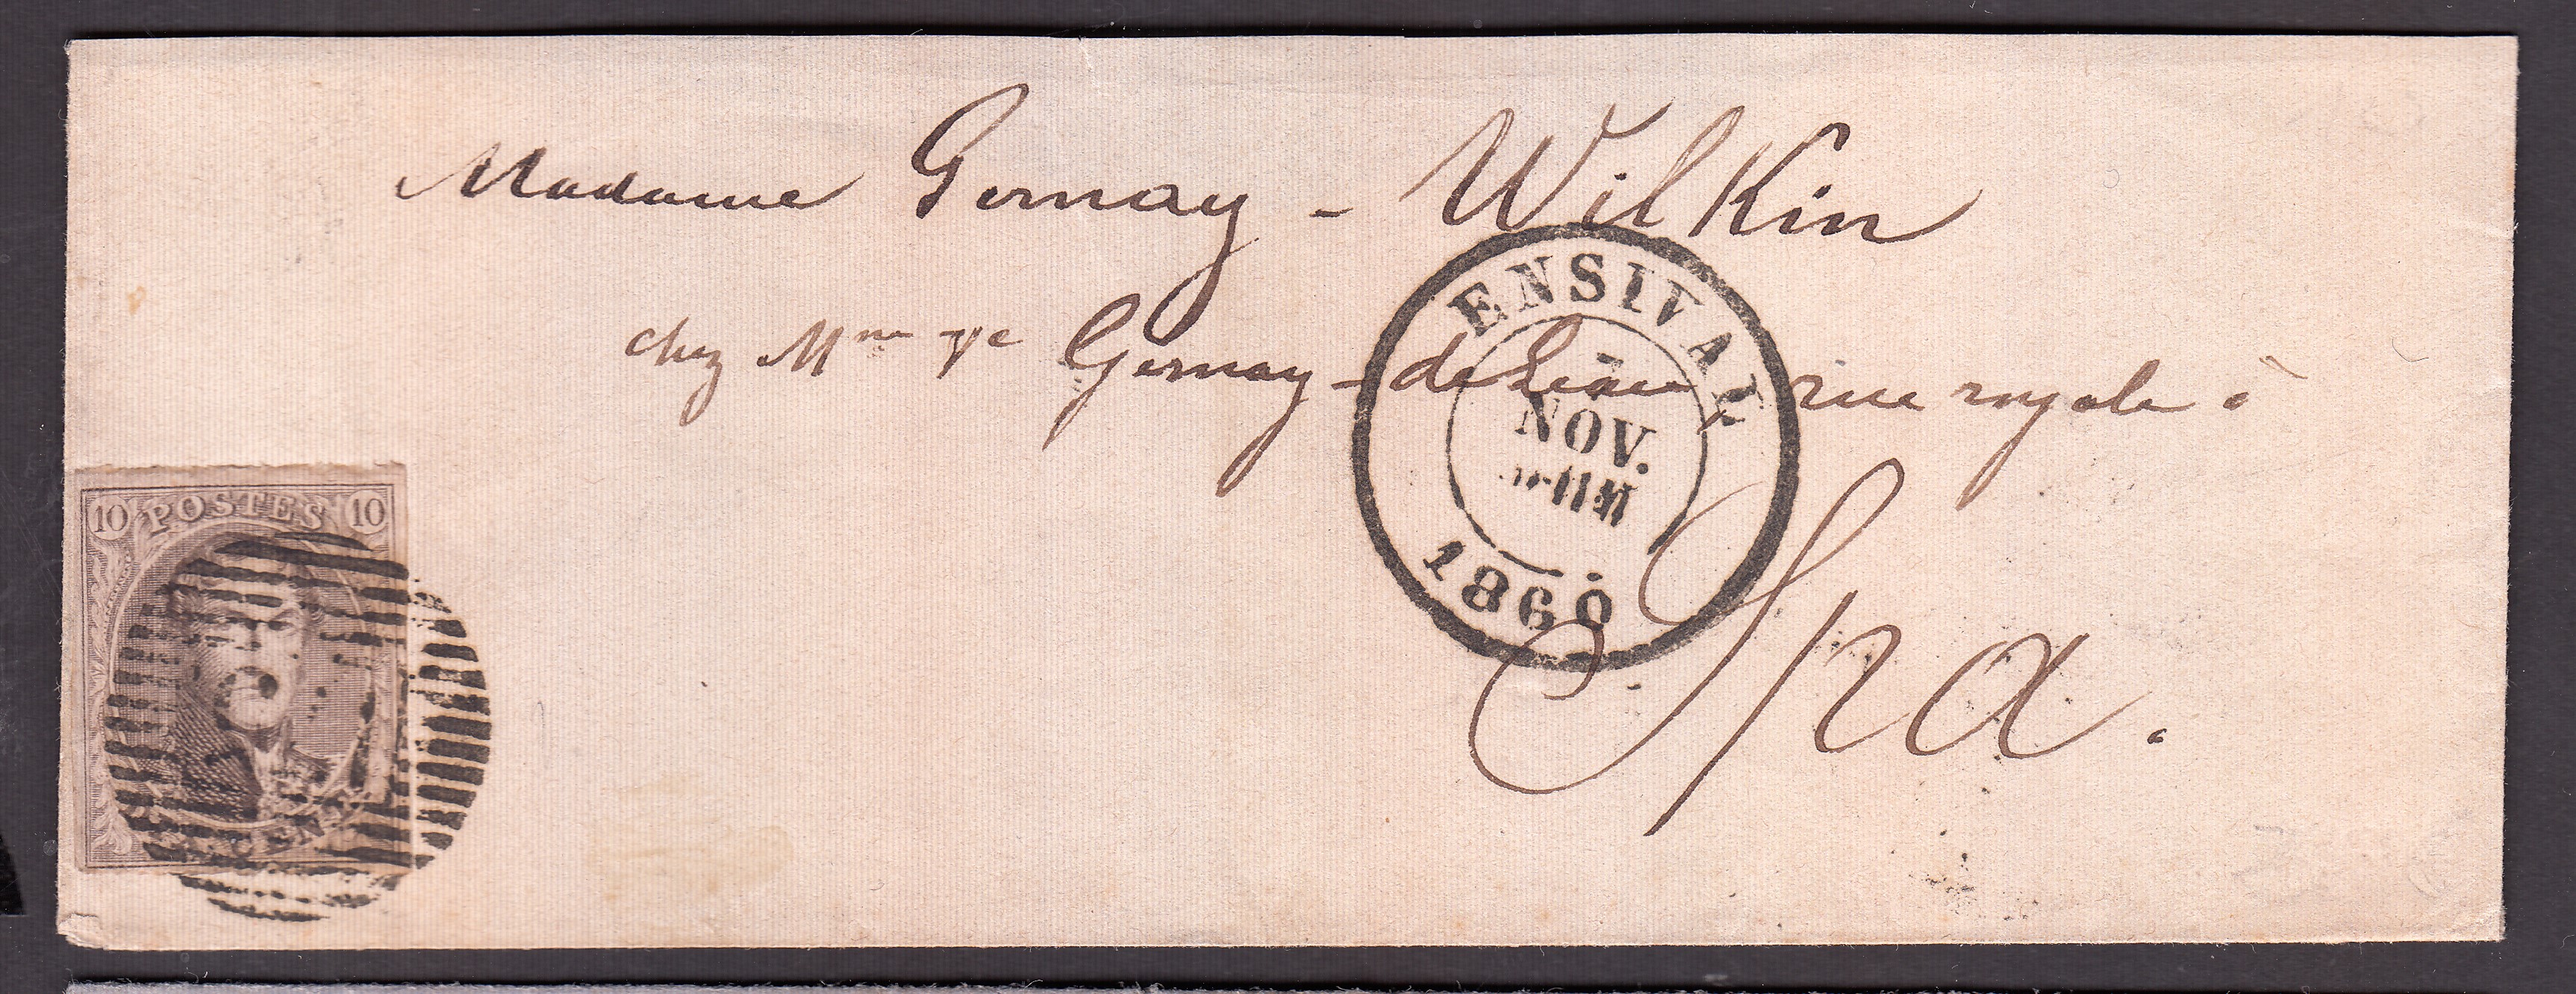 Madame Gernay - Wilkin
chez Mme Ve Gernay - de Leau, rue royale à
Spa.
ENSIVAL
NOV.
1860
10 POSTES 10